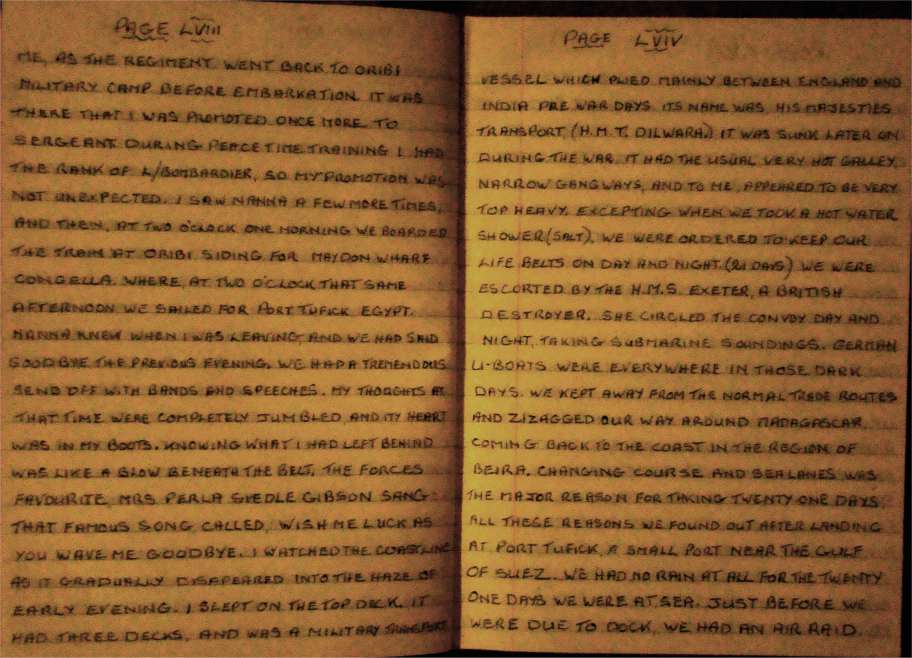 PAGE LVIII
ME, AS THE REGIMENT WENT BACK TO ORIBI
MILITARY CAMP BEFORE EMBARKATION. IT WAS
THERE THAT I WAS PROMOTED ONCE MORE TO
SERGEANT DURING PEACETIME TRAINING I HAD
THE RANK OF L/BOMBARDIER, SO MY PROMOTION WAS
NOT UNEXPECTED. I SAW NANNA A FEW MORE TIMES,
AND THEN, AT TWO O'CLOCK ONE MORNING WE BOARDED
THE TRAIN AT ORIBI SIDING FOR MAYDON WHARF
CONGELLA. WHERE, AT TWO O'CLOCK THAT SAME
AFTERNOON WE SAILED FOR PORT TUFICK EGYPT.
NANNA KNEW WHEN I WAS LEAVING, AND WE HAD SAID
GOODBYE THE PREVIOUS EVENING. WE HAD A TREMENDOUS
SEND OFF WITH BANDS AND SPEECHES. MY THOUGHTS AT
THAT TIME WERE COMPLETELY JUMBLED, AND MY HEART
WAS IN MY BOOTS. KNOWING WHAT I HAD LEFT BEHIND
WAS LIKE A BLOW BENEATH THE BELT. THE FORCES
FAVOURITE, MRS. PERLA SIEDLE GIBSON SANG
THAT FAMOUS SONG CALLED, WISH ME LUCK AS
YOU WAVE ME GOODBYE. I WATCHED THE COASTLINE
AS IT GRADUALLY DISAPEARED INTO THE HAZE OF
EARLY EVENING. I SLEPT ON THE TOP DECK. IT
HAD THREE DECKS, AND WAS A MILITARY TRANSPORT
PAGE LVIV
VESSEL WHICH PLIED MAINLY BETWEEN ENGLAND AND
INDIA PRE WAR DAYS. ITS NAME WAS HIS MAJESTIES
TRANSPORT, (H.M.T. DILWARA.) IT WAS SUNK LATER ON
DURING THE WAR. IT HAD THE USUAL VERY HOT GALLEY,
NARROW GANGWAYS, AND TO ME, APPEARED TO BE VERY
TOP HEAVY. EXCEPTING WHEN WE TOOK A HOT WATER
SHOWER (SALT), WE WERE ORDERED TO KEEP OUR
LIFE BELTS ON DAY AND NIGHT. (21 DAYS) WE WERE
ESCORTED BY THE H.M.S. EXETER, A BRITISH
DESTROYER. SHE CIRCLED THE CONVOY DAY AND
NIGHT, TAKING SUBMARINE SOUNDINGS. GERMAN
U-BOATS WERE EVERYWHERE IN THOSE DARK
DAYS. WE KEPT AWAY FROM THE NORMAL TRADE ROUTES
AND ZIZAGGED OUR WAY AROUND MADAGASCAR,
COMING BACK TO THE COAST IN THE REGION OF
BEIRA. CHANGING COURSE AND SEALANES WAS
THE MAJOR REASON FOR TAKING TWENTY ONE DAYS,
ALL THESE REASONS WE FOUND OUT AFTER LANDING
AT PORT TUFICK, A SMALL PORT NEAR THE GULF
OF SUEZ. WE HAD NO RAIN AT ALL FOR THE TWENTY
ONE DAYS WE WERE AT SEA. JUST BEFORE WE
WERE DUE TO DOCK, WE HAD AN AIR RAID.